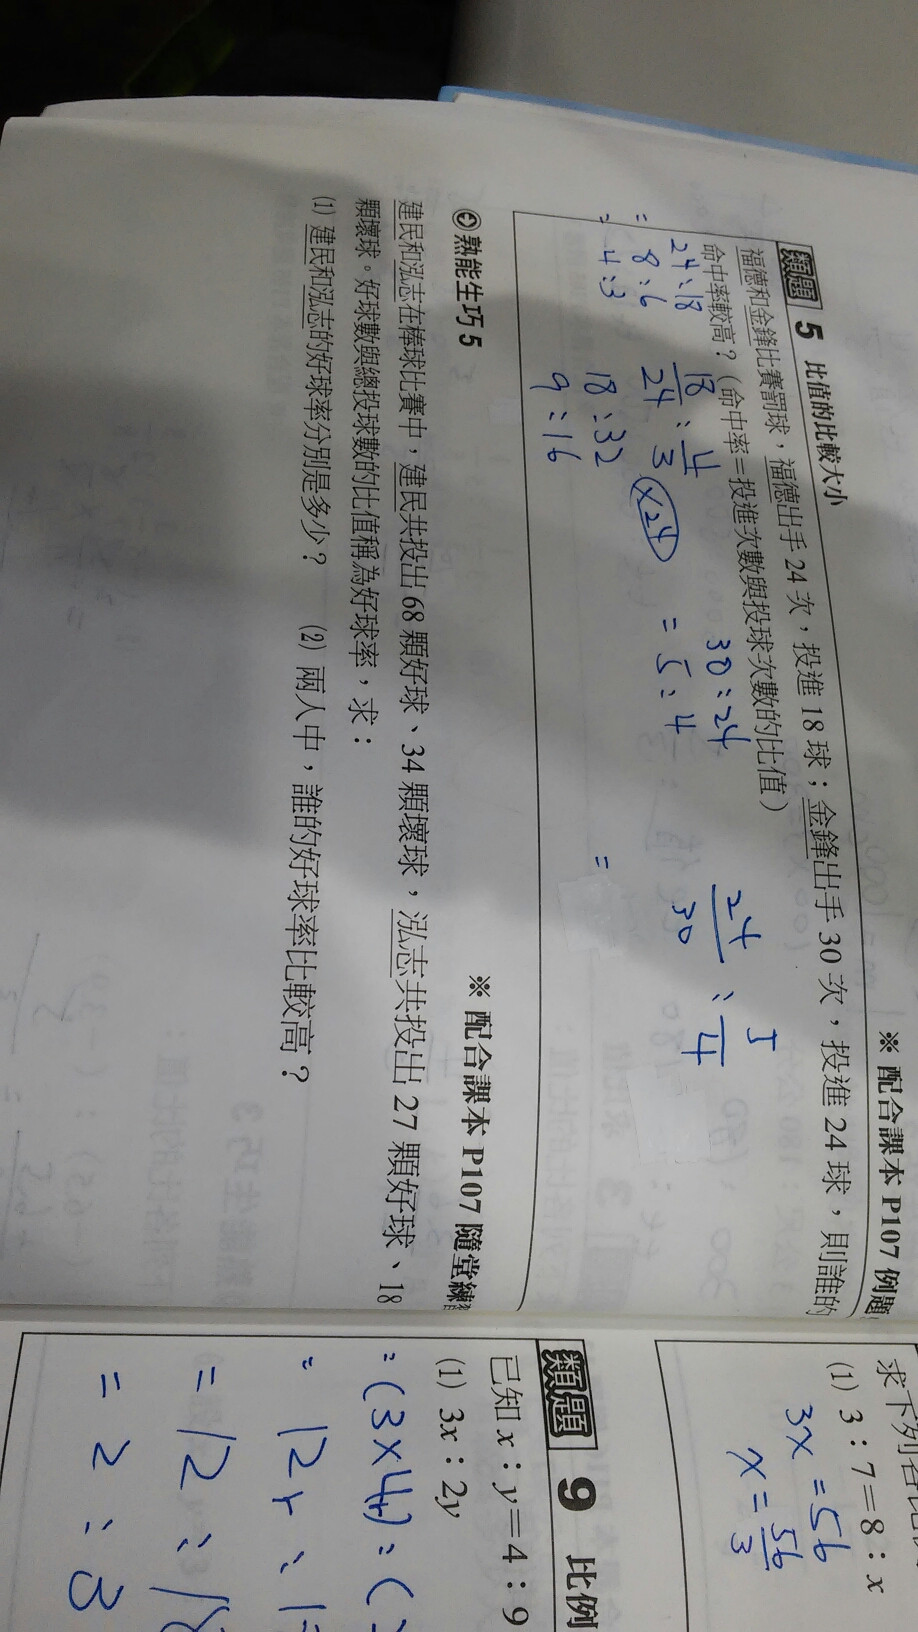 ※ 配合課本 P107 例題
類題 5 比值的比較大小
福德和金鋒比賽罰球，福德出手 24 次，投進 18 球；金鋒出手 30 次，投進 24 球，則誰的
命中率較高？（命中率＝投進次數與投球次數的比值）
24:18
= 8:6
= 4:3
18/24 : 4/3
×24
18:32
9:16
30:24
= 5:4
24/30 : 5/4
=
熟能生巧 5
※ 配合課本 P107 隨堂練
建民和泓志在棒球比賽中，建民共投出 68 顆好球、34 顆壞球，泓志共投出 27 顆好球、18
顆壞球。好球數與總投球數的比值稱為好球率，求：
(1) 建民和泓志的好球率分別是多少？ (2) 兩人中，誰的好球率比較高？
求下列各比
(1) 3：7＝8：x
3x = 56
x = 56/3
類題 9 比例
已知 x：y＝4：9
(1) 3x：2y
= (3×4r) : (
= 12r : 1
= 12 : 18
= 2 : 3